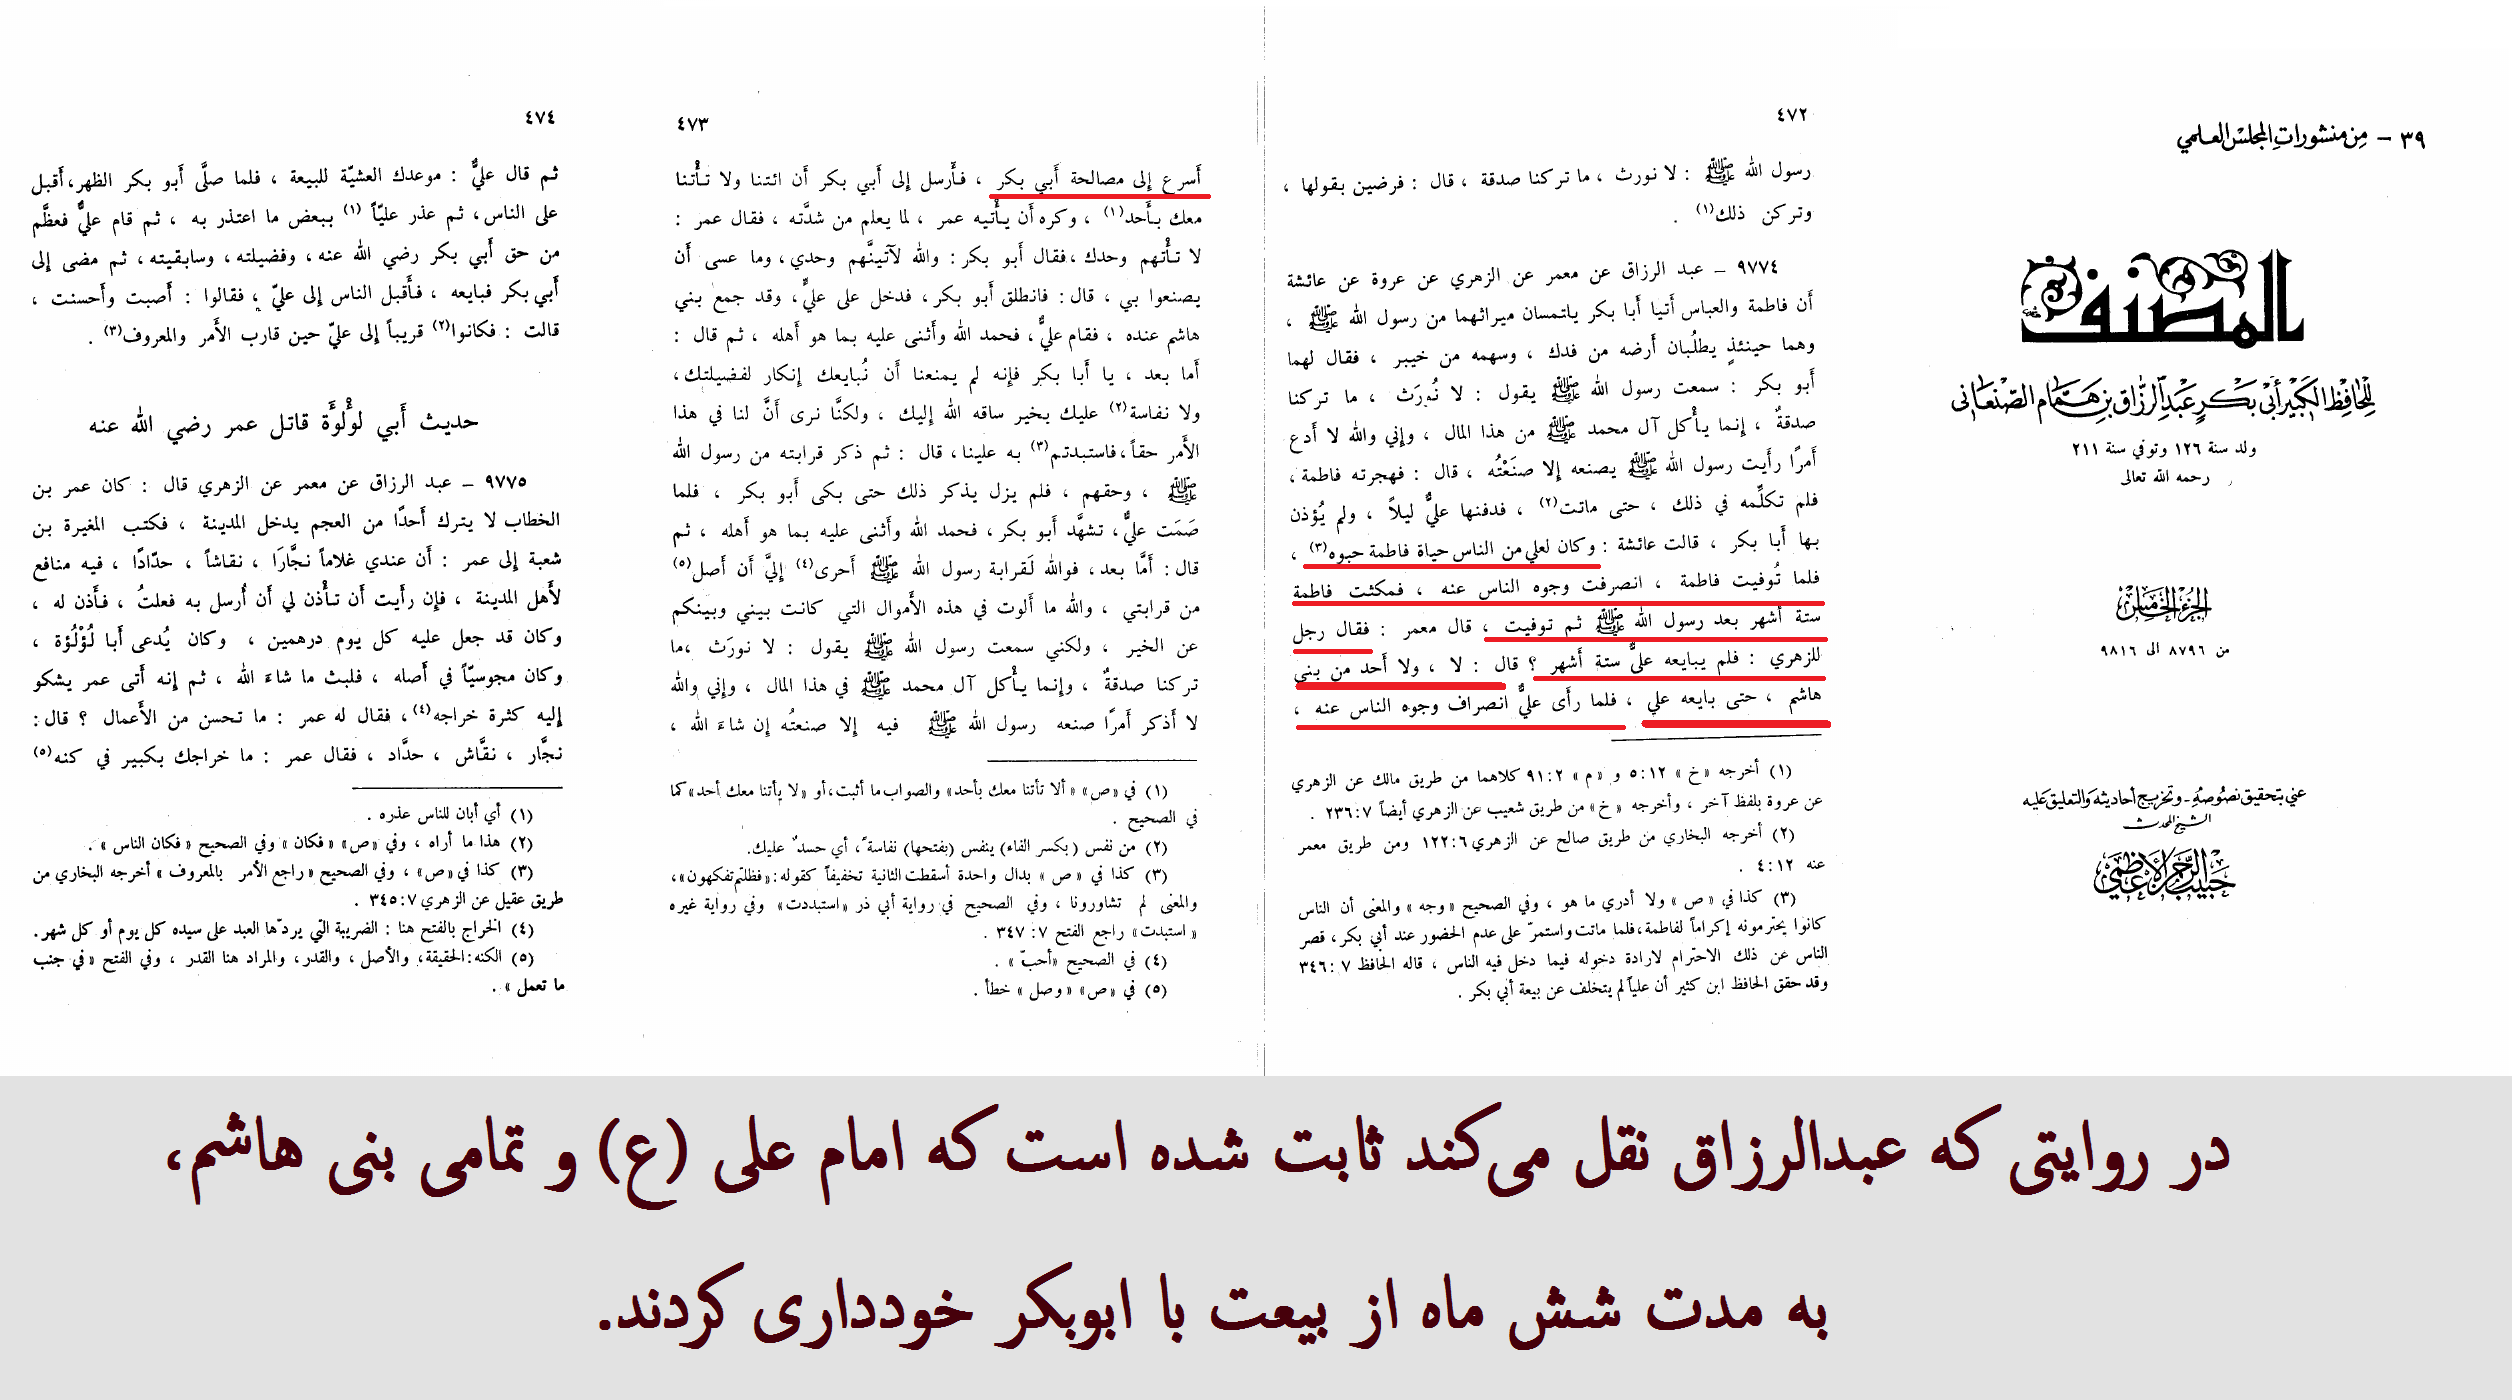 ٣٩ - من منشورات المجلس العلمي
المصنف
للحافظ الكبير أبي بكر عبد الرزاق بن همام الصنعاني
ولد سنة ١٢٦ وتوفي سنة ٢١١
رحمه الله تعالى
الجزء الخامس
من ٨٧٩٦ الى ٩٨١٦
عني بتحقيق نصوصه - وتخريج أحاديثه والتعليق عليه
الشيخ المحدث
حبيب الرحمن الأعظمي
٤٧٢
رسول الله ﷺ : لا نورث ، ما تركنا صدقة ، قال : فرضين بقولها ،
وتركن ذلك(١) .
٩٧٧٤ – عبد الرزاق عن معمر عن الزهري عن عروة عن عائشة
أن فاطمة والعباس أَتيا أَبا بكر يلتمسان ميراثهما من رسول الله ﷺ ،
وهما حينئذٍ يطلُبان أَرضه من فدك ، وسهمه من خيبر ، فقال لهما
أَبو بكر : سمعت رسول الله ﷺ يقول : لا نُورَث ، ما تركنا
صدقةٌ ، إنما يأْكل آل محمد ﷺ من هذا المال ، وإني والله لا أَدع
أَمرًا رأَيت رسول الله ﷺ يصنعه إلا صنَعْتُه ، قال : فهجرته فاطمة ،
فلم تكلِّمه في ذلك ، حتى ماتت(٢) ، فدفنها عليٌّ ليلاً ، ولم يُؤذن
بها أَبا بكر ، قالت عائشة : وكان لعلي من الناس حياة فاطمة حبوه(٣) ،
فلما تُوفيت فاطمة ، انصرفت وجوه الناس عنه ، فمكثت فاطمة
ستة أشهر بعد رسول الله ﷺ ثم توفيت ، قال معمر : فقال رجل
للزهري : فلم يبايعه عليٌّ ستة أَشهر ؟ قال : لا ، ولا أَحد من بني
هاشم ، حتى بايعه علي ، فلما رأى عليٌّ انصراف وجوه الناس عنه ،
(١) أخرجه «خ» ٥:١٢ و «م» ٩١:٢ كلاهما من طريق مالك عن الزهري
عن عروة بلفظ آخر ، وأخرجه «خ» من طريق شعيب عن الزهري أيضاً ٢٣٦:٧ .
(٢) أخرجه البخاري من طريق صالح عن الزهري ١٢٢:٦ ومن طريق معمر
عنه ٤:١٢ .
(٣) كذا في «ص» ولا أدري ما هو ، وفي الصحيح «وجه» والمعنى أن الناس
كانوا يحترمونه إكراماً لفاطمة، فلما ماتت واستمرّ على عدم الحضور عند أبي بكر، قصر
الناس عن ذلك الاحترام لإرادة دخوله فيما دخل فيه الناس ، قاله الحافظ ٣٤٦:٧
وقد حقق الحافظ ابن كثير أن علياً لم يتخلف عن بيعة أبي بكر .
٤٧٣
أَسرع إلى مصالحة أَبي بكر ، فأَرسل إلى أَبي بكر أَن ائتنا ولا تأْتنا
معك بأَحد(١) ، وكره أَن يأْتيه عمر ، لما يعلم من شدَّته ، فقال عمر :
لا تأْتهم وحدك ، فقال أَبو بكر : والله لآتينَّهم وحدي، وما عسى أَن
يصنعوا بي ، قال : فانطلق أَبو بكر، فدخل على عليٍّ، وقد جمع بني
هاشم عنده ، فقام عليٌّ، فحمد الله وأَثنى عليه بما هو أَهله ، ثم قال :
أَما بعد ، يا أَبا بكر فإنه لم يمنعنا أَن نُبايعك إنكار لفضيلتك،
ولا نفاسة(٢) عليك بخير ساقه الله إليك ، ولكنَّا نرى أَنَّ لنا في هذا
الأَمر حقاً، فاستبدتم(٣) به علينا، قال : ثم ذكر قرابته من رسول الله
ﷺ ، وحقهم ، فلم يزل يذكر ذلك حتى بكى أَبو بكر ، فلما
صَمَت عليٌّ، تشهَّد أَبو بكر، فحمد الله وأَثنى عليه بما هو أَهله ، ثم
قال : أَمَّا بعد، فوالله لَقرابة رسول الله ﷺ أَحرى(٤) إليَّ أَن أَصل(٥)
من قرابتي ، والله ما أَلوت في هذه الأَموال التي كانت بيني وبينكم
عن الخير ، ولكني سمعت رسول الله ﷺ يقول : لا نورَث ،ما
تركنا صدقةٌ ، وإنما يأْكل آل محمد ﷺ في هذا المال ، وإني والله
لا أَذكر أَمرًا صنعه رسول الله ﷺ فيه إلا صنعتُه إن شاءَ الله ،
(١) في «ص» «ألا تأتنا معك بأحد» والصواب ما أثبت،أو «لا يأتنا معك أحد»كما
في الصحيح .
(٢) من نفس (بكسر الفاء) ينفس (بفتحها) نفاسةً، أي حسدٌ عليك.
(٣) كذا في «ص» بدال واحدة أسقطت الثانية تخفيفاً كقوله:«فظلتم تفكهون»،
والمعنى لم تشاورونا ، وفي الصحيح في رواية أبي ذر «استبددت» وفي رواية غيره
«استبدت» راجع الفتح ٧: ٣٤٧ .
(٤) في الصحيح «أحبّ» .
(٥) في «ص» «وصل» خطأ .
٤٧٤
ثم قال عليٌّ : موعدك العشيّة للبيعة ، فلما صلَّى أَبو بكر الظهر،أَقبل
على الناس، ثم عذر عليّاً (١) ببعض ما اعتذر به ، ثم قام عليٌّ فعظَّم
من حق أَبي بكر رضي الله عنه، وفضيلته، وسابقيته، ثم مضى إلى
أَبي بكر فبايعه ، فأَقبل الناس إلى عليّ ، فقالوا : أَصبت وأَحسنت ،
قالت : فكانوا(٢) قريباً إلى عليّ حين قارب الأَمر والمعروف(٣) .
حديث أَبي لؤْلُؤَة قاتل عمر رضي الله عنه
٩٧٧٥ – عبد الرزاق عن معمر عن الزهري قال : كان عمر بن
الخطاب لا يترك أَحدًا من العجم يدخل المدينة ، فكتب المغيرة بن
شعبة إلى عمر : أَن عندي غلاماً نجَّارَا ، نقاشاً ، حدّادًا ، فيه منافع
لأَهل المدينة ، فإن رأَيت أَن تأْذن لي أَن أُرسل به فعلتُ ، فأَذن له ،
وكان قد جعل عليه كل يوم درهمين ، وكان يُدعى أَبا لُؤْلُؤة ،
وكان مجوسيّاً في أَصله ، فلبث ما شاءَ الله ، ثم إنه أَتى عمر يشكو
إليه كثرة خراجه(٤)، فقال له عمر : ما تحسن من الأَعمال ؟ قال:
نجَّار ، نقَّاش ، حدَّاد ، فقال عمر : ما خراجك بكبير في كنه(٥)
(١) أي أبان للناس عذره .
(٢) هذا ما أراه ، وفي «ص» «فكان» وفي الصحيح «فكان الناس» .
(٣) كذا في«ص» ، وفي الصحيح «راجع الأمر بالمعروف» أخرجه البخاري من
طريق عقيل عن الزهري ٣٤٥:٧ .
(٤) الخراج بالفتح هنا : الضريبة التي يردّها العبد على سيده كل يوم أو كل شهر.
(٥) الكنه:الحقيقة، والأصل ، والقدر، والمراد هنا القدر ، وفي الفتح «في جنب
ما تعمل» .
در روایتی که عبدالرزاق نقل می‌کند ثابت شده است که امام علی (ع) و تمامی بنی هاشم،
به مدت شش ماه از بیعت با ابوبکر خودداری کردند.